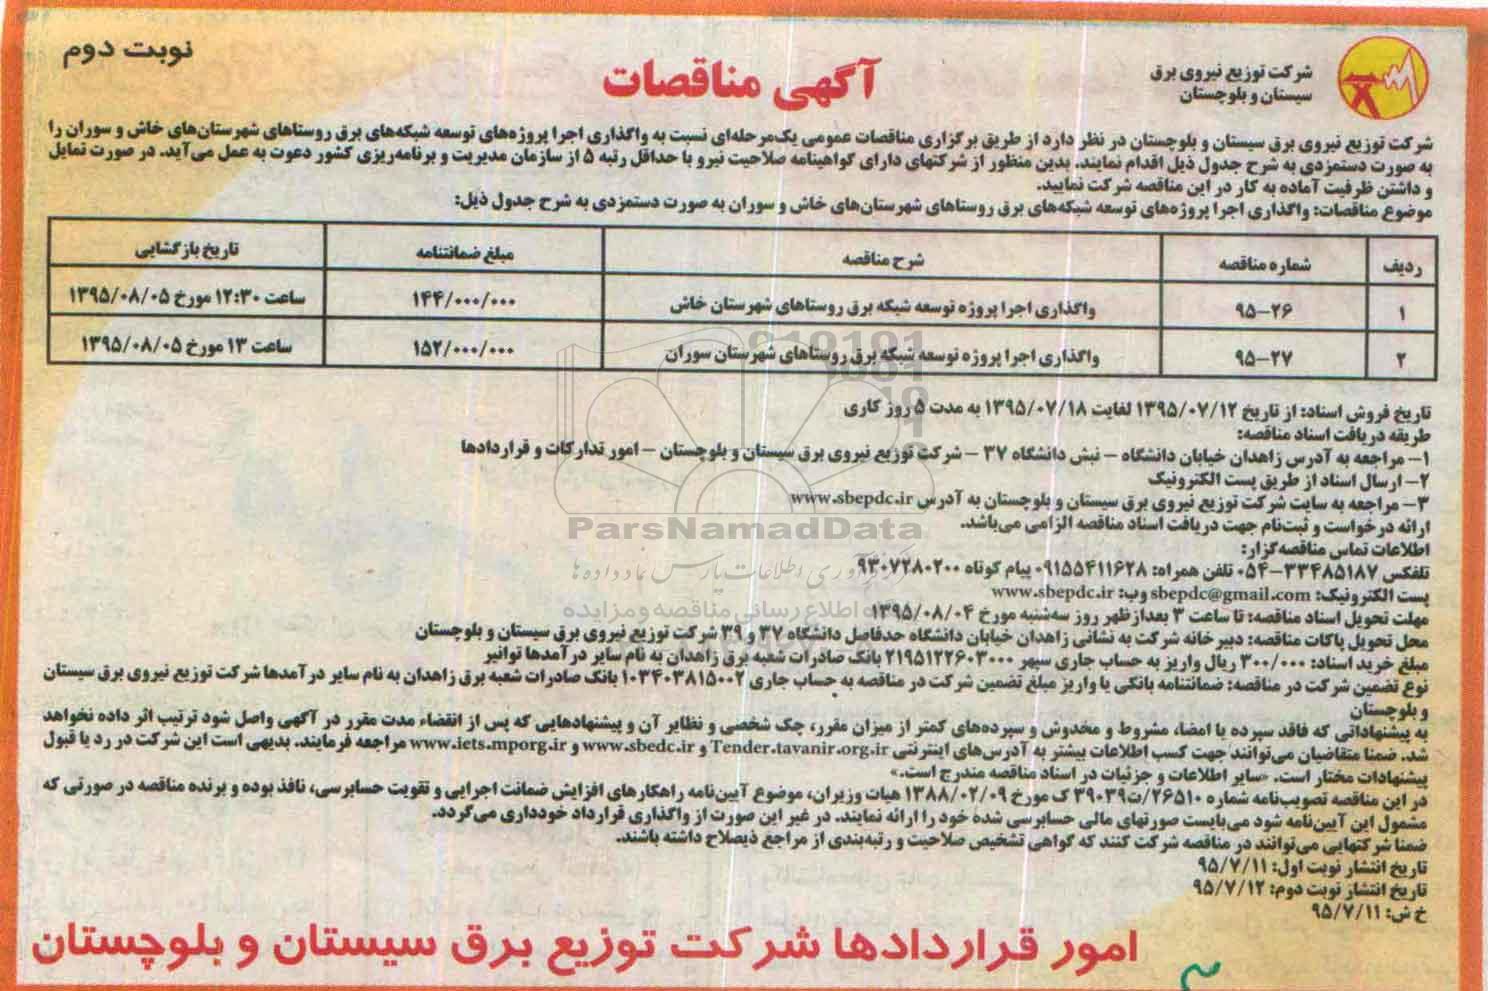 نوبت دوم
شرکت توزیع نیروی برق
سیستان و بلوچستان
آگهی مناقصات
شرکت توزیع نیروی برق سیستان و بلوچستان در نظر دارد از طریق برگزاری مناقصات عمومی یک‌مرحله‌ای نسبت به واگذاری اجرا پروژه‌های توسعه شبکه‌های برق روستاهای شهرستان‌های خاش و سوران را
به صورت دستمزدی به شرح جدول ذیل اقدام نمایند. بدین منظور از شرکتهای دارای گواهینامه صلاحیت نیرو با حداقل رتبه ۵ از سازمان مدیریت و برنامه‌ریزی کشور دعوت به عمل می‌آید. در صورت تمایل
و داشتن ظرفیت آماده به کار در این مناقصه شرکت نمایید.
موضوع مناقصات: واگذاری اجرا پروژه‌های توسعه شبکه‌های برق روستاهای شهرستان‌های خاش و سوران به صورت دستمزدی به شرح جدول ذیل:
ردیف شماره مناقصه شرح مناقصه مبلغ ضمانتنامه تاریخ بازگشایی
۱ ۲۶–۹۵ واگذاری اجرا پروژه توسعه شبکه برق روستاهای شهرستان خاش ۱۴۴/۰۰۰/۰۰۰ ساعت ۱۲:۳۰ مورخ ۱۳۹۵/۰۸/۰۵
۲ ۲۷–۹۵ واگذاری اجرا پروژه توسعه شبکه برق روستاهای شهرستان سوران ۱۵۲/۰۰۰/۰۰۰ ساعت ۱۳ مورخ ۱۳۹۵/۰۸/۰۵
تاریخ فروش اسناد: از تاریخ ۱۳۹۵/۰۷/۱۲ لغایت ۱۳۹۵/۰۷/۱۸ به مدت ۵ روز کاری
طریقه دریافت اسناد مناقصه:
۱– مراجعه به آدرس زاهدان خیابان دانشگاه – نبش دانشگاه ۳۷ – شرکت توزیع نیروی برق سیستان و بلوچستان – امور تدارکات و قراردادها
۲– ارسال اسناد از طریق پست الکترونیک
۳– مراجعه به سایت شرکت توزیع نیروی برق سیستان و بلوچستان به آدرس www.sbepdc.ir
ParsNamadData
ارائه درخواست و ثبت‌نام جهت دریافت اسناد مناقصه الزامی می‌باشد.
اطلاعات تماس مناقصه‌گزار:
تلفکس ۳۳۴۸۵۱۸۷–۰۵۴ تلفن همراه: ۰۹۱۵۵۴۱۱۶۲۸ پیام کوتاه ۹۳۰۷۲۸۰۲۰۰
پست الکترونیک: sbepdc@gmail.com وب: www.sbepdc.ir
اطلاع رسانی مناقصه و مزایده
مهلت تحویل اسناد مناقصه: تا ساعت ۳ بعدازظهر روز سه‌شنبه مورخ ۱۳۹۵/۰۸/۰۴
محل تحویل پاکات مناقصه: دبیرخانه شرکت به نشانی زاهدان خیابان دانشگاه حدفاصل دانشگاه ۳۷ و ۳۹ شرکت توزیع نیروی برق سیستان و بلوچستان
مبلغ خرید اسناد: ۳۰۰/۰۰۰ ریال واریز به حساب جاری سپهر ۲۱۹۵۱۲۲۶۰۳۰۰۰ بانک صادرات شعبه برق زاهدان به نام سایر درآمدها توانیر
نوع تضمین شرکت در مناقصه: ضمانتنامه بانکی یا واریز مبلغ تضمین شرکت در مناقصه به حساب جاری ۱۰۳۴۰۳۸۱۵۰۰۲ بانک صادرات شعبه برق زاهدان به نام سایر درآمدها شرکت توزیع نیروی برق سیستان
و بلوچستان
به پیشنهاداتی که فاقد سپرده یا امضا، مشروط و مخدوش و سپرده‌های کمتر از میزان مقرر، چک شخصی و نظایر آن و پیشنهادهایی که پس از انقضاء مدت مقرر در آگهی واصل شود ترتیب اثر داده نخواهد
شد. ضمنا متقاضیان می‌توانند جهت کسب اطلاعات بیشتر به آدرس‌های اینترنتی Tender.tavanir.org.ir و www.sbedc.ir و www.iets.mporg.ir مراجعه فرمایند. بدیهی است این شرکت در رد یا قبول
پیشنهادات مختار است. «سایر اطلاعات و جزئیات در اسناد مناقصه مندرج است.»
در این مناقصه تصویب‌نامه شماره ۲۶۵۱۰/ت۳۹۰۳۹ ک مورخ ۱۳۸۸/۰۲/۰۹ هیات وزیران، موضوع آیین‌نامه راهکارهای افزایش ضمانت اجرایی و تقویت حسابرسی، نافذ بوده و برنده مناقصه در صورتی که
مشمول این آیین‌نامه شود می‌بایست صورتهای مالی حسابرسی شده خود را ارائه نمایند. در غیر این صورت از واگذاری قرارداد خودداری می‌گردد.
ضمنا شرکتهایی می‌توانند در مناقصه شرکت کنند که گواهی تشخیص صلاحیت و رتبه‌بندی از مراجع ذیصلاح داشته باشند.
تاریخ انتشار نوبت اول: ۹۵/۷/۱۱
تاریخ انتشار نوبت دوم: ۹۵/۷/۱۲
خ ش: ۹۵/۷/۱۱
امور قراردادها شرکت توزیع برق سیستان و بلوچستان